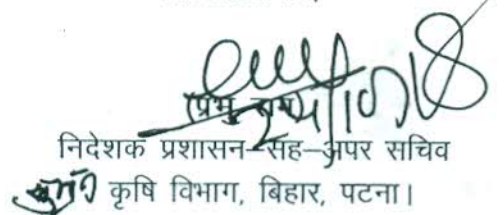 (प्रभु राम)
निदेशक प्रशासन-सह-अपर सचिव
कृषि विभाग, बिहार, पटना।